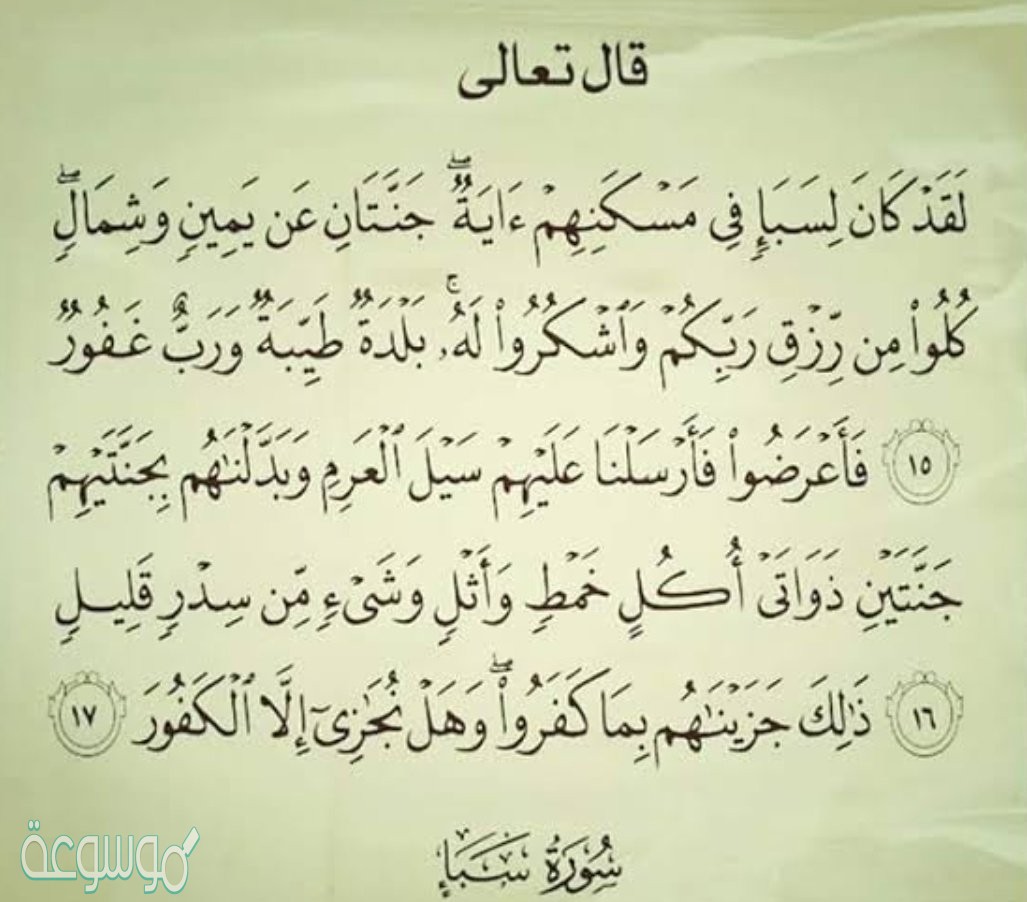 قال تعالى
لَقَدْ كَانَ لِسَبَإٍ فِي مَسْكَنِهِمْ ءَايَةٌ ۖ جَنَّتَانِ عَن يَمِينٍ وَشِمَالٍ ۖ
كُلُوا۟ مِن رِّزْقِ رَبِّكُمْ وَٱشْكُرُوا۟ لَهُۥ ۚ بَلْدَةٌ طَيِّبَةٌ وَرَبٌّ غَفُورٌ
١٥ فَأَعْرَضُوا۟ فَأَرْسَلْنَا عَلَيْهِمْ سَيْلَ ٱلْعَرِمِ وَبَدَّلْنَٰهُم بِجَنَّتَيْهِمْ
جَنَّتَيْنِ ذَوَاتَىْ أُكُلٍ خَمْطٍ وَأَثْلٍ وَشَىْءٍ مِّن سِدْرٍ قَلِيلٍ
١٦ ذَٰلِكَ جَزَيْنَٰهُم بِمَا كَفَرُوا۟ ۖ وَهَلْ نُجَٰزِىٓ إِلَّا ٱلْكَفُورَ ١٧
سُورَةُ سَبَإٍ
موسوعة